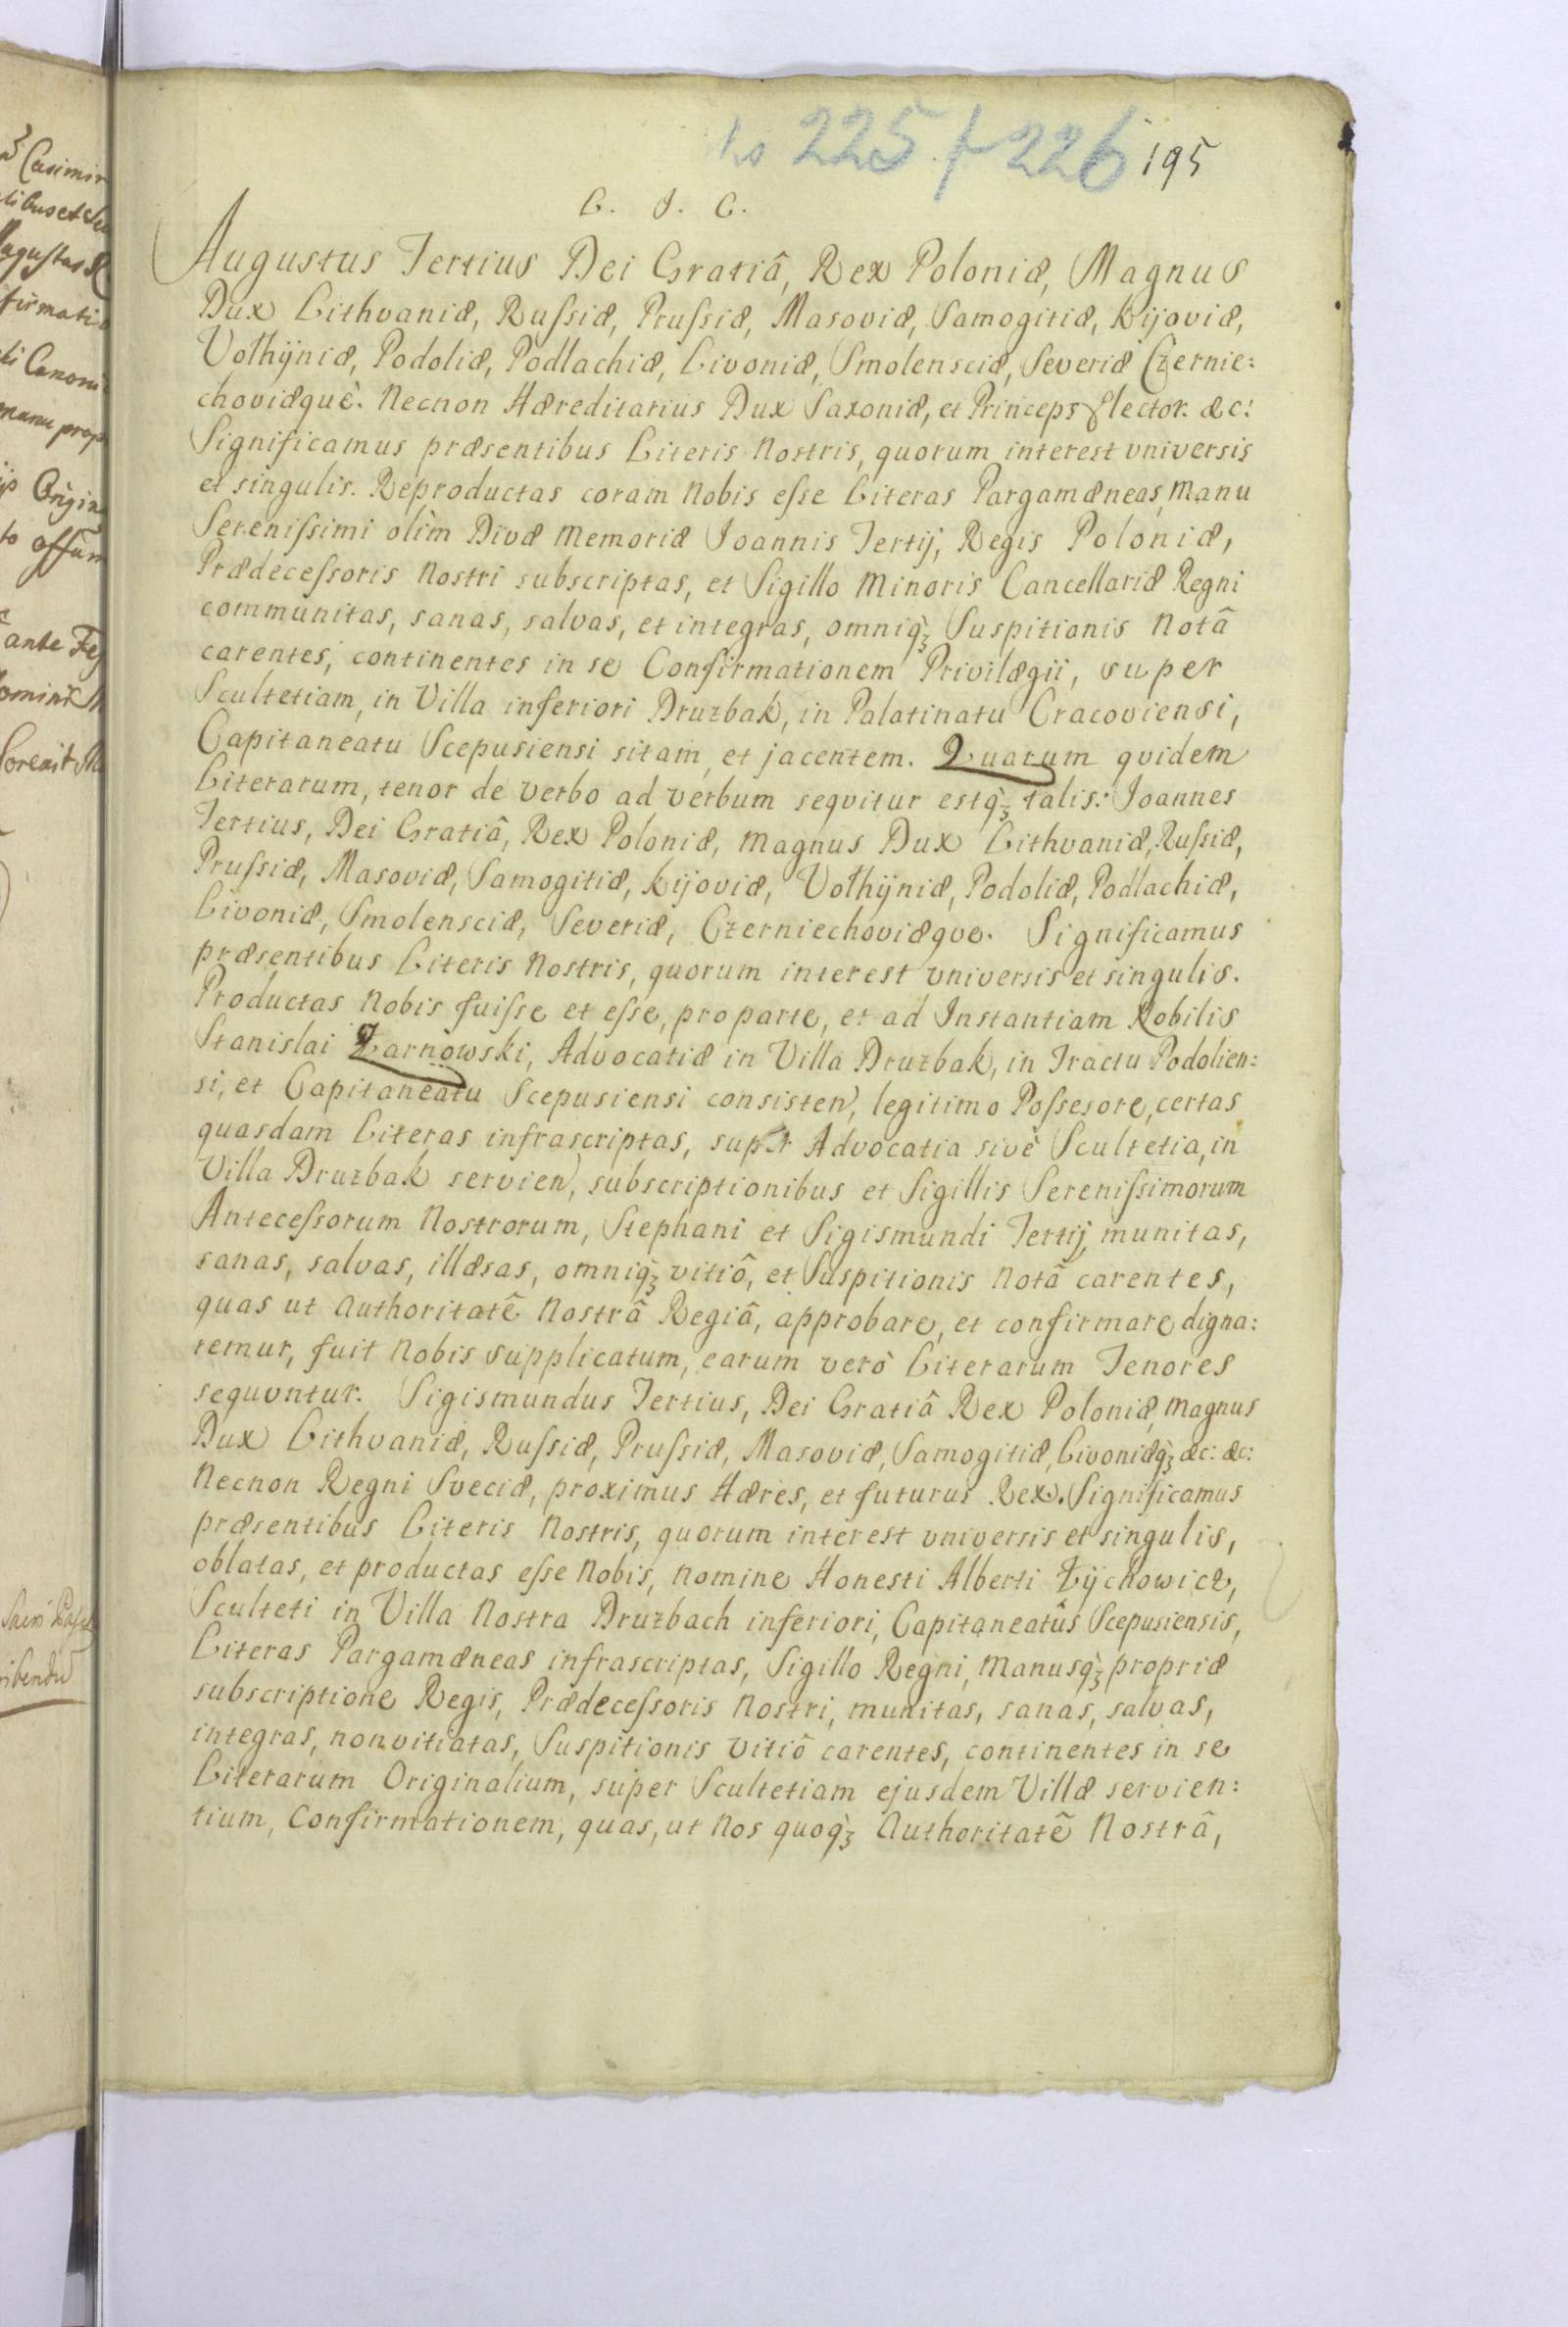 No 225 / 226 195
C. J. C.
Augustus Tertius Dei Gratiâ, Rex Poloniæ, Magnus
Dux Lithvaniæ, Ruſsiæ, Pruſsiæ, Masoviæ, Samogitiæ, Kijoviæ,
Volhÿniæ, Podoliæ, Podlachiæ, Livoniæ, Smolensciæ, Severiæ Czernie:
choviæquè. Necnon Hæreditarius Dux Saxoniæ, et Princeps Elector. &c:
Significamus præsentibus Literis Nostris, quorum interest vniversis
et singulis. Reproductas coram Nobis eſse Literas Pargamæneas, Manu
Sereniſsimi olìm Divæ Memoriæ Joannis Tertij, Regis Poloniæ,
Prædeceſsoris Nostri subscriptas, et Sigillo Minoris Cancellariæ Regni
communitas, sanas, salvas, et integras, omniq̀ꝫ Suspitionis Notâ
carentes, continentes in se Confirmationem Privilægii, super
Scultetiam, in Villa inferiori Druzbak, in Palatinatu Cracoviensi,
Capitaneatu Scepusiensi sitam, et jacentem. Quarum qvidem
Literarum, tenor de verbo ad verbum seqvitur estq̀ꝫ talis: Joannes
Tertius, Dei Gratiâ, Rex Poloniæ, Magnus Dux Lithvaniæ, Ruſsiæ,
Pruſsiæ, Masoviæ, Samogitiæ, Kijoviæ, Volhÿniæ, Podoliæ, Podlachiæ,
Livoniæ, Smolensciæ, Severiæ, Czerniechoviæqve. Significamus
præsentibus Literis Nostris, quorum interest vniversis et singulis.
Productas Nobis fuiſse et eſse, pro parte, et ad Instantiam Nobilis
Stanislai Żarnowski, Advocatiæ in Villa Druzbak, in Tractu Podolien:
si, et Capitaneatu Scepusiensi consisten, legitimo Poſsesore, certas
quasdam Literas infrascriptas, super Advocatia sivè Scultetia, in
Villa Druzbak servien, subscriptionibus et Sigillis Sereniſsimorum
Anteceſsorum Nostrorum, Stephani et Sigismundi Tertij, munitas,
sanas, salvas, illæsas, omniq̀ꝫ vitiô, et Suspitionis Notâ carentes,
quas ut Authoritatê Nostrâ Regiâ, approbare, et confirmare digna:
remur, fuit Nobis supplicatum, earum verò Literarum Tenores
sequvntur. Sigismundus Tertius, Dei Gratiâ Rex Poloniæ, Magnus
Dux Lithvaniæ, Ruſsiæ, Pruſsiæ, Masoviæ, Samogitiæ, Livoniæq̀ꝫ &c: &c:
Necnon Regni Sveciæ, proximus Hæres, et futurus Rex. Significamus
præsentibus Literis Nostris, quorum interest vniversis et singulis,
oblatas, et productas eſse Nobis, Nomine Honesti Alberti Zÿchowicz,
Sculteti in Villa Nostra Druzbach inferiori, Capitaneatûs Scepusiensis,
Literas Pargamæneas infrascriptas, Sigillo Regni, Manusq̀ꝫ propriæ
subscriptione Regis, Prædeceſsoris Nostri, munitas, sanas, salvas,
integras, non vitiatas, Suspitionis vitiô carentes, continentes in se
Literarum Originalium, super Scultetiam ejusdem Villæ servien:
tium, Confirmationem, quas, ut Nos quoq̀ꝫ Authoritatê Nostrâ,